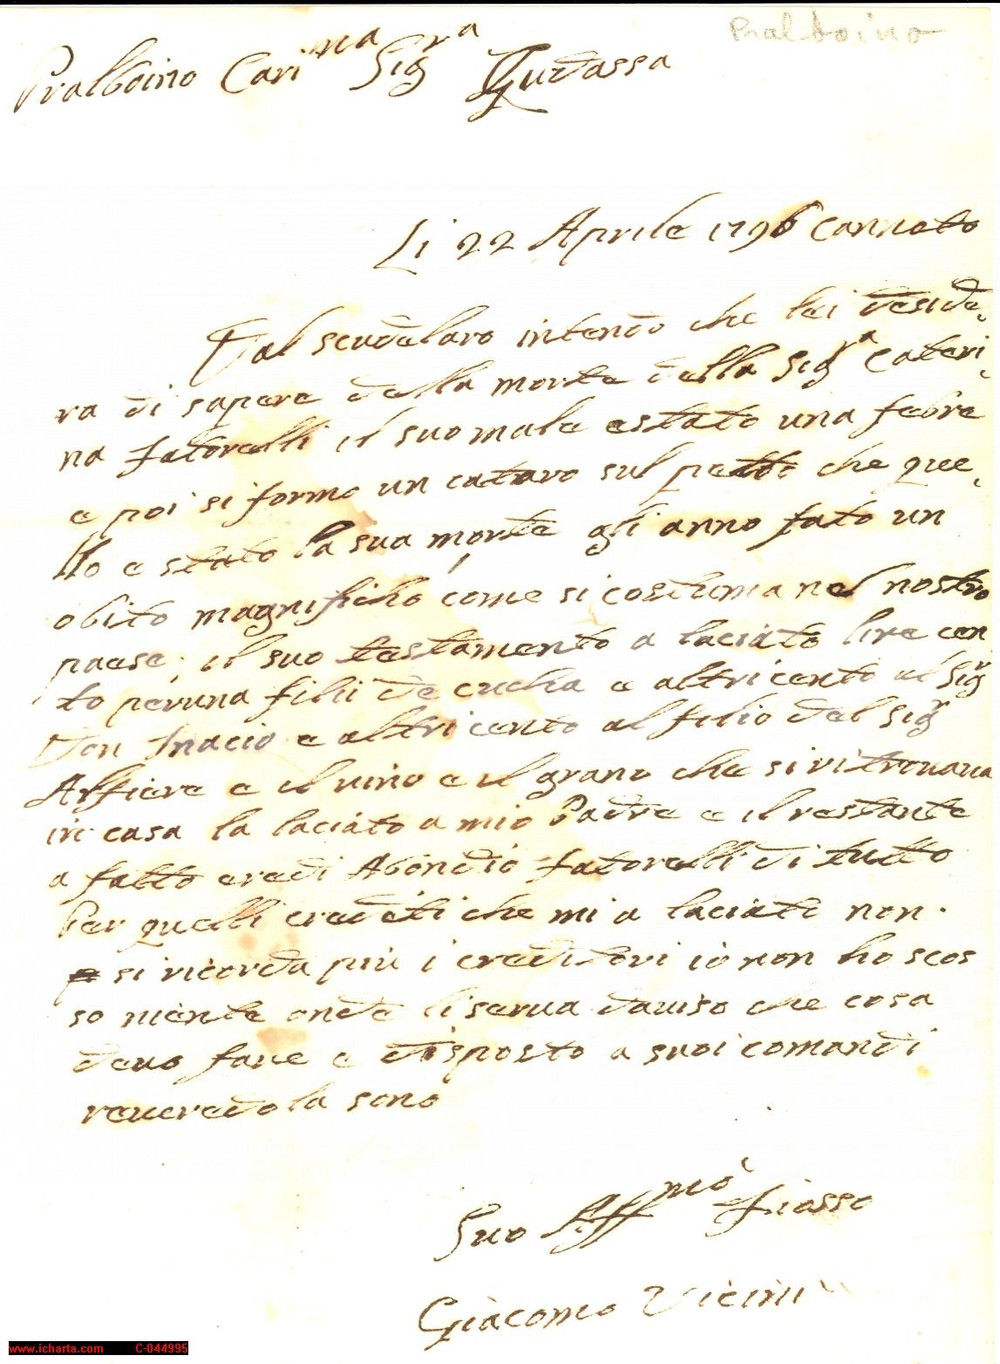 Pralboino
Pralboino Cari ma Sig ra Gudassa
Li 22 Aprile 1796 Canneto
Dal scudelaro intendo che lei deside,
ra di sapere della morte della Sig ra Cateri,
na fatorelli il suo male estato una febre
e poi si formo un cataro sul petto che que,
llo e stato la sua morte gli anno fato un
obito magnificho come si costuma nel nostro
paese, il suo testamento a laciato lire cen
to per una filii de cucha e altri cento al Sigr
Don Inacio e altri cento al filio del Sigr
Alfiere e il vino e il grano che si ritrovava
in casa la laciato a mio Padre e il restante
a fatto eredi Abondio fatorelli di tutto
Per quelli crediti che mi a laciato non
si ricorda più i creditori io non ho scos
so niente onde li serva daviso che cosa
devo fare e disposto a suoi comandi
reveredola sono
Suo Aff mo Fiosso
Giacomo Vicini
www.icharta.com C-044995